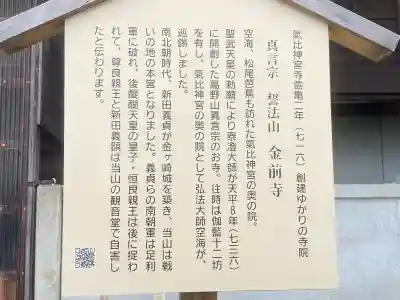 氣比神宮寺霊亀二年（七一六）創建ゆかりの寺院
真言宗　誓法山　金前寺
空海、松尾芭蕉も訪れた氣比神宮の奥の院。
聖武天皇の勅願により泰澄大師が天平８年（七三六）
に開創した高野山真言宗のお寺。往時は伽藍十二坊
を有し、氣比神宮の奥の院として弘法大師空海が、
巡錫しました。
南北朝時代、新田義貞が金ヶ崎城を築き、当山は戦
いの地の本営となりました。義貞らの南朝軍は足利
軍に破れ、後醍醐天皇の皇子・恒良親王は後に捉わ
れて、尊良親王と新田義顕は当山の観音堂で自害し
たと伝わります。